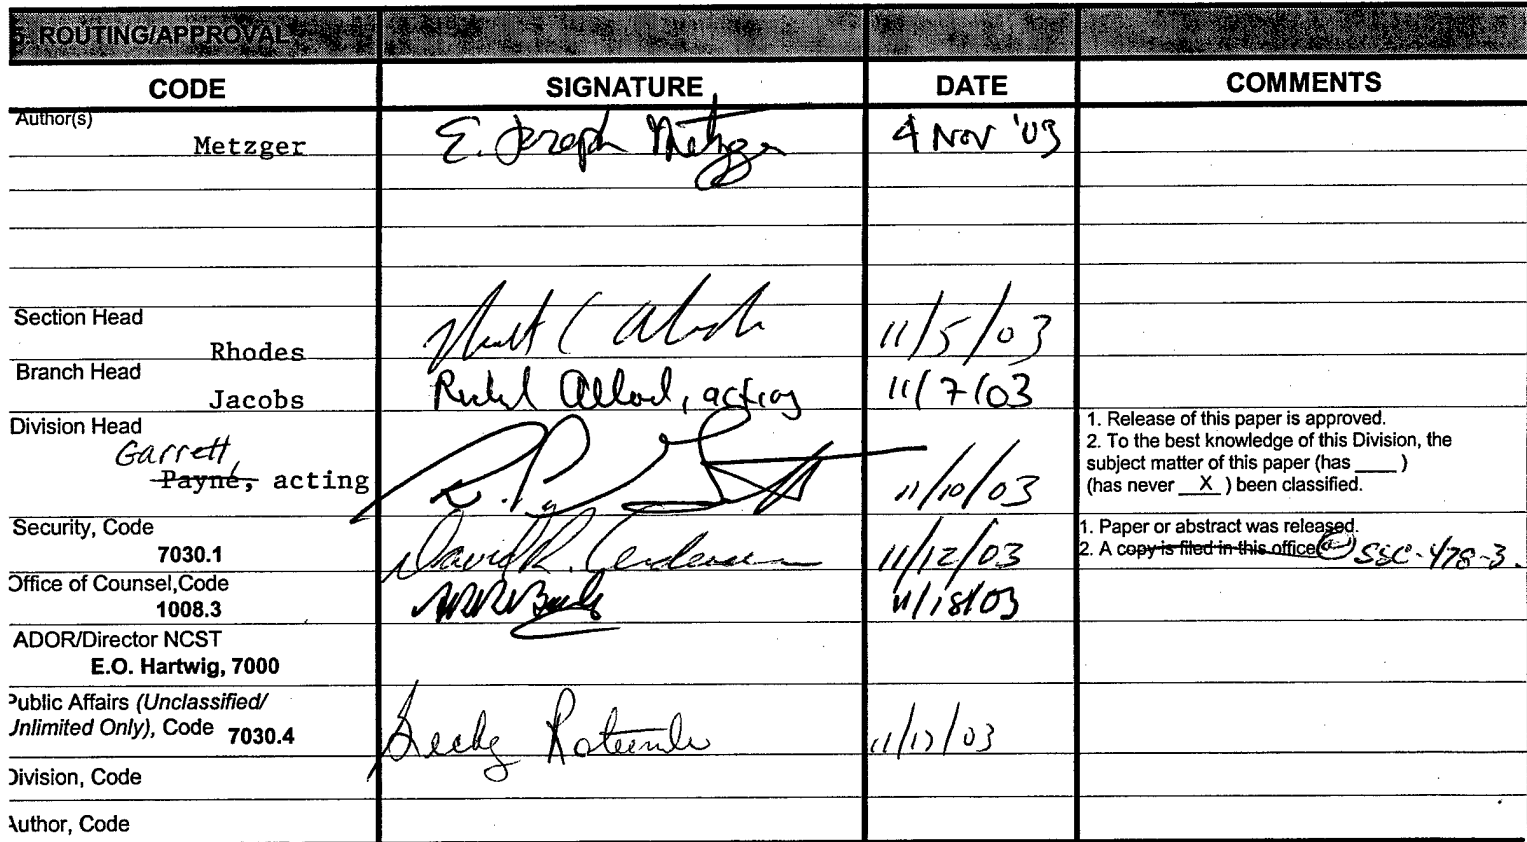 5. ROUTING/APPROVAL
CODE SIGNATURE DATE COMMENTS
Author(s)
Metzger E. Joseph Metzger 4 Nov '03
Section Head
Rhodes 11/5/03
Branch Head
Jacobs acting 11/7/03
Division Head
Garrett
Payne, acting 11/10/03
1. Release of this paper is approved.
2. To the best knowledge of this Division, the
subject matter of this paper (has ____ )
(has never X ) been classified.
Security, Code
7030.1 David R. 11/12/03
1. Paper or abstract was released.
2. A copy is filed in this office SSC-478-3.
Office of Counsel,Code
1008.3 11/18/03
ADOR/Director NCST
E.O. Hartwig, 7000
Public Affairs (Unclassified/
Unlimited Only), Code 7030.4 11/17/03
Division, Code
Author, Code